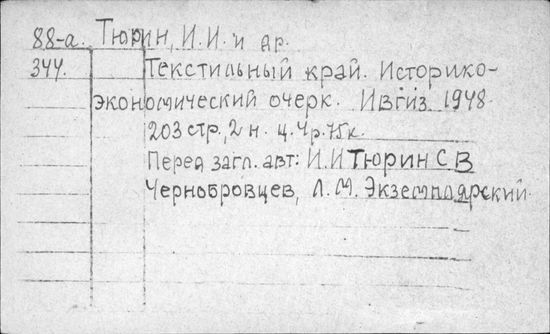 88-а. Тюрин, И.И. и др.
344. Текстильный край. Историко-
экономический очерк. Ивгиз. 1948.
203 стр., 2 н. ц. 4р. 75к.
Перед загл. авт: И.И Тюрин С В
Чернобровцев, Л.М. Экземплярский.